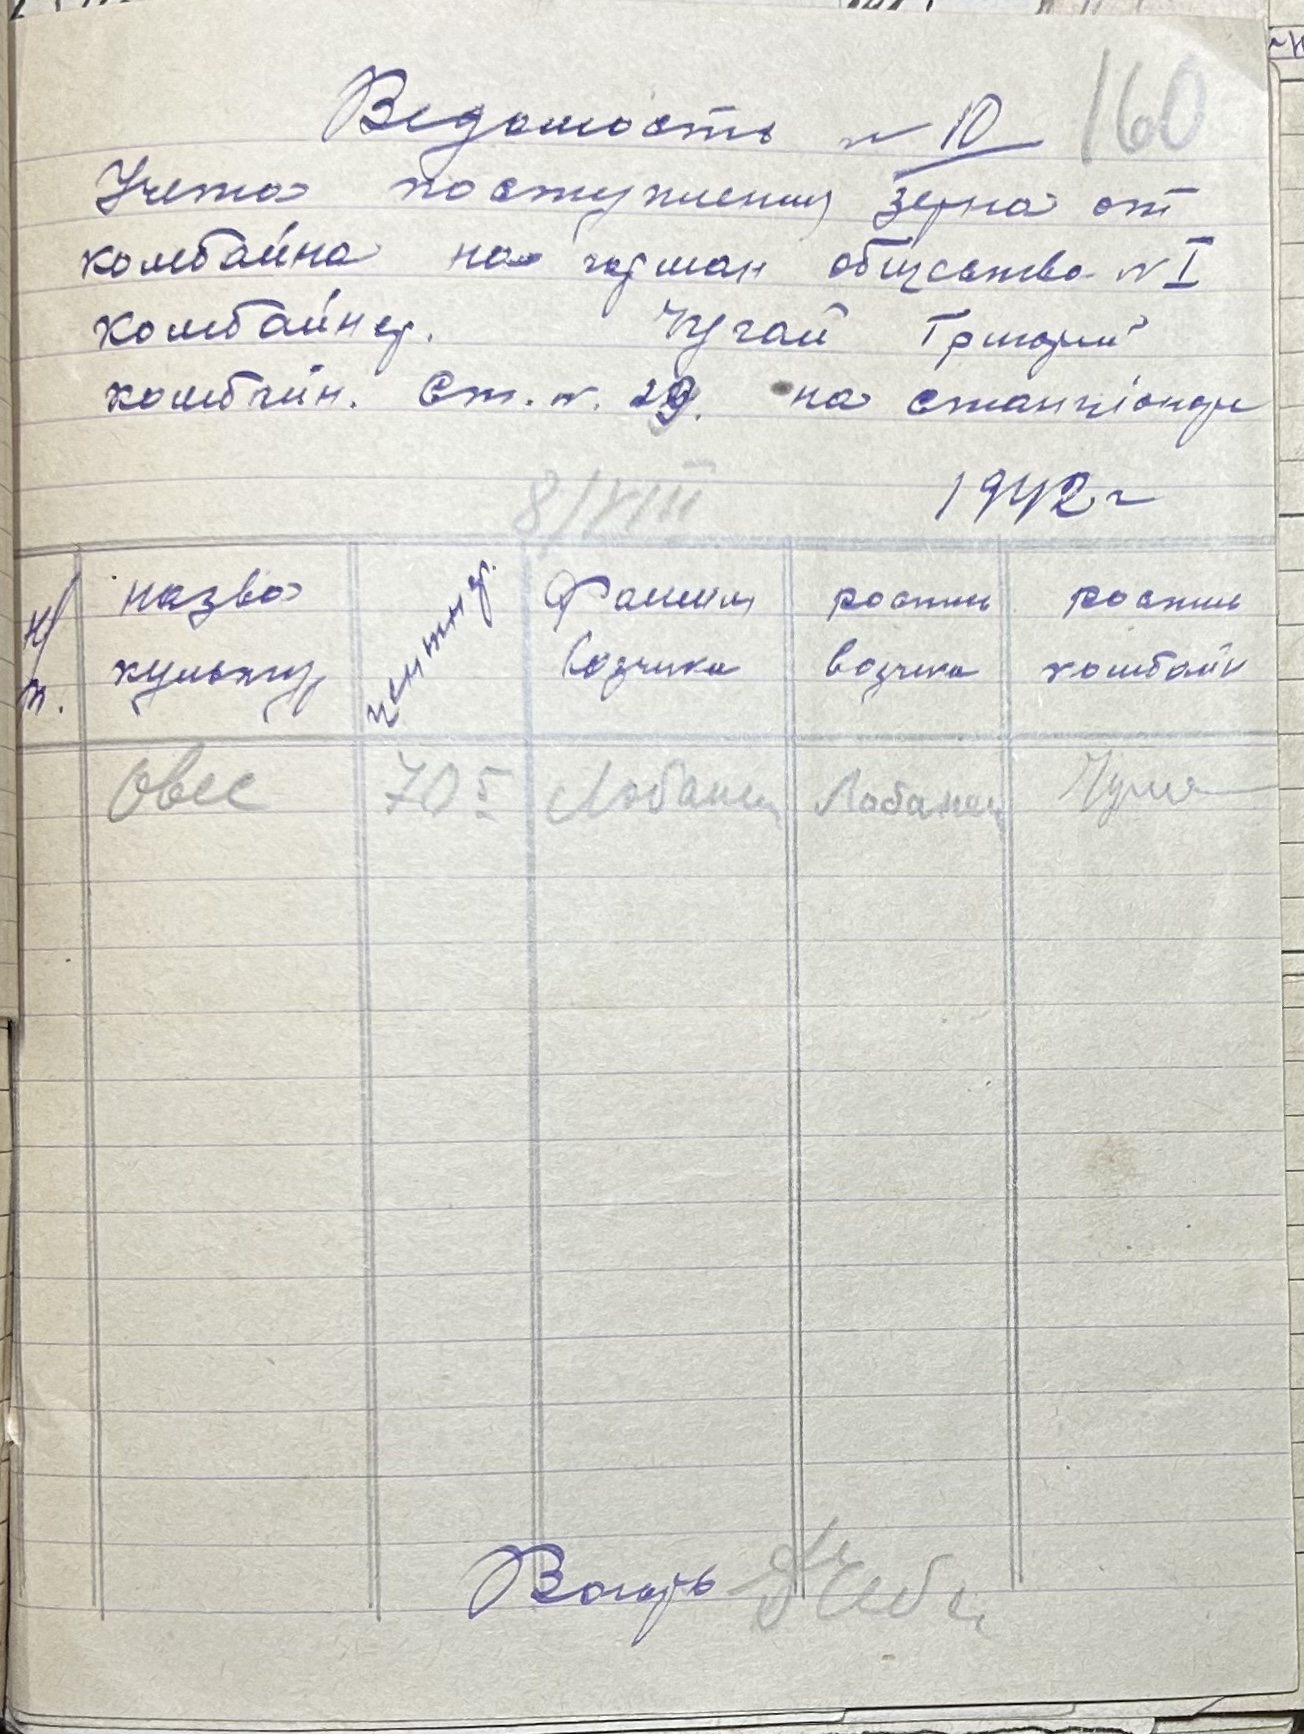 160
Ведомость № 10
Учета поступления зерна от
комбайна на гарман общество № I
комбайнер. Чугай Григорий
комбайн. Ст. №. 29. на
8/VIII 1942 г
н/п. назва культур центнер. Фамилия Возчика роспис возчика роспис комбайн
Овес 705 Лобанец Лобанец
Вагарь